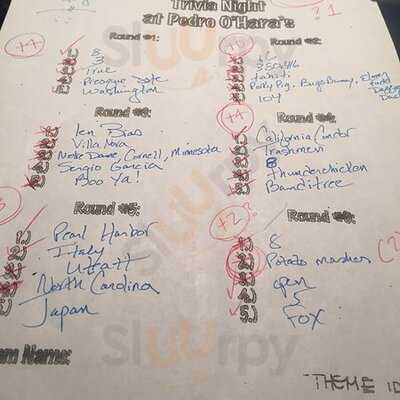 Trivia Night
at Pedro O'Hara's
? 1
+4
Round #1:
1.) 8
2.) 3
3.) True
4.)
5.) Washington
Round #2:
Tahiti
Porky Pig, Bugs Bunny, Elmer
Fudd
Daffy
Duck
Icy
Round #3:
Len Bias
Villa Nova
Notre Dame, Cornell, Minnesota
Sergio Garcia
Boo Ya!
+4
Round #4:
California Condor
Trashmen
8
Thunderchicken
Banditree
3
Round #5:
1.) Pearl Harbor
2.) Italy
3.) Wyatt
4.) North Carolina
5.) Japan
+2?
Round #6:
1.) 8
2.) Potato masher
(2)
3.) open
4.) 5
5.) Fox
am Name:
THEME ID
slurrpy